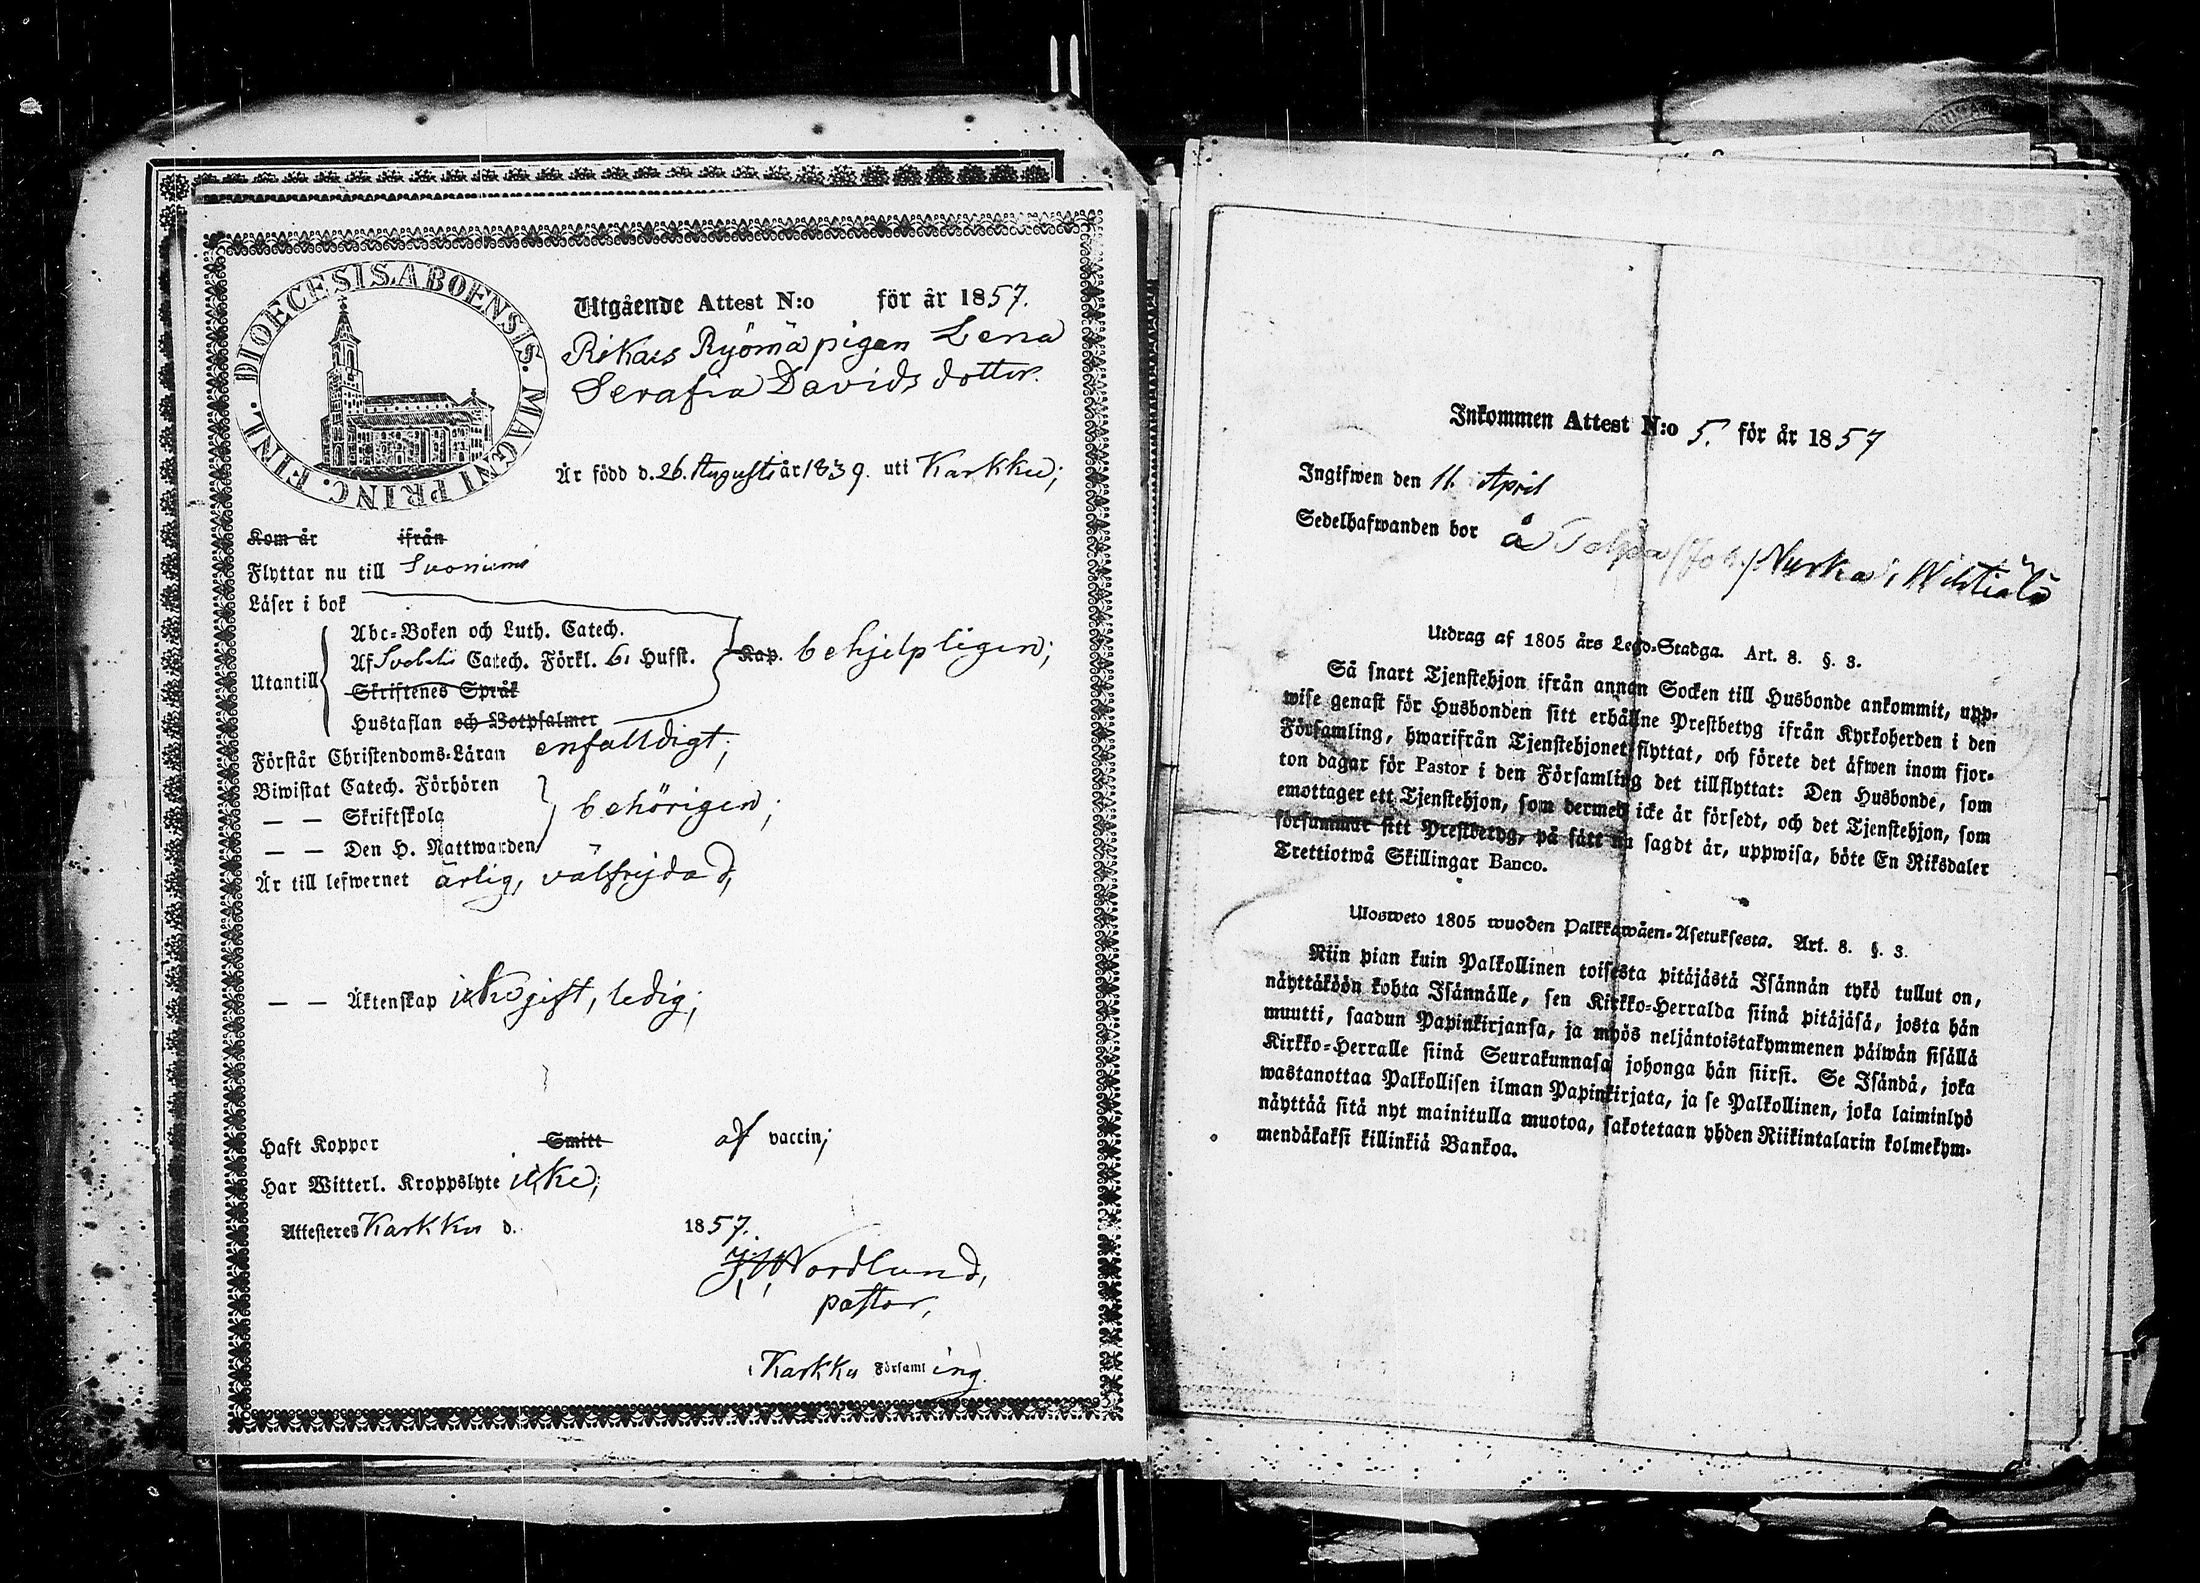 DIOECESIS. ABOENSIS. MAGNI PRINC. FINL.
Utgående Attest N:o för år 1857.
Rikais Ryömä pigan Lena
Serafia Davids dotter.
Är född d. 26. Augusti år 1839. uti Karkku;
Kom år ifrån
Flyttar nu till Suoniemi
Läser i bok
Utantill
Abc-Boken och Luth. Catech.
Af Svebelii Catech. Förkl. 6. Hufst.
Skriftenes Språk
Hustaflan och Botpsalmer
Kap. behjelpligen;
Förstår Christendoms-Läran enfalldigt;
Biwistat Catech. Förhören
— — Skriftskola behörigen;
— — Den H. Nattwarden
Är till lefwernet ärlig, välfrejdad,
— — Äktenskap icke gift, ledig;
Haft Koppor Smitt af vaccin;
Har Witterl. Kroppslyte icke;
Attesteres Karkku d. 1857.
Nordlund,
pastor,
i Karkku Församling.
Inkommen Attest N:o 5. för år 1857
Ingifwen den 11. April
Sedelhafwanden bor å Nurka i Wihtiälä
Utdrag af 1805 års Lego-Stadga. Art. 8. §. 3.
Så snart Tjenstehjon ifrån annan Socken till Husbonde ankommit, upp-
wise genast för Husbonden sitt erhållne Prestbetyg ifrån Kyrkoherden i den
Församling, hwarifrån Tjenstehjonet flyttat, och förete det äfwen inom fjor-
ton dagar för Pastor i den Församling det tillflyttat: Den Husbonde, som
emottager ett Tjenstehjon, som dermed icke är försedt, och det Tjenstehjon, som
försummar sitt Prestbetyg, på sätt nu sagdt är, uppwisa, böte En Riksdaler
Trettiotwå Skillingar Banco.
Ulosweto 1805 wuoden Palkkawäen-Asetuksesta. Art. 8. §. 3.
Niin pian kuin Palkollinen toisesta pitäjästä Isännän tykö tullut on,
näyttäköön kohta Isännälle, sen Kirkko-Herralda siinä pitäjäsä, josta hän
muutti, saadun Papinkirjansa, ja myös neljäntoistakymmenen päiwän sisällä
Kirkko-Herralle siinä Seurakunnasa johonga hän siirsi. Se Isändä, joka
wastanottaa Palkollisen ilman Papinkirjata, ja se Palkollinen, joka laiminlyö
näyttää sitä nyt mainitulla muotoa, sakotetaan yhden Riikintalarin kolmekym-
mendäkaksi killinkiä Bankoa.